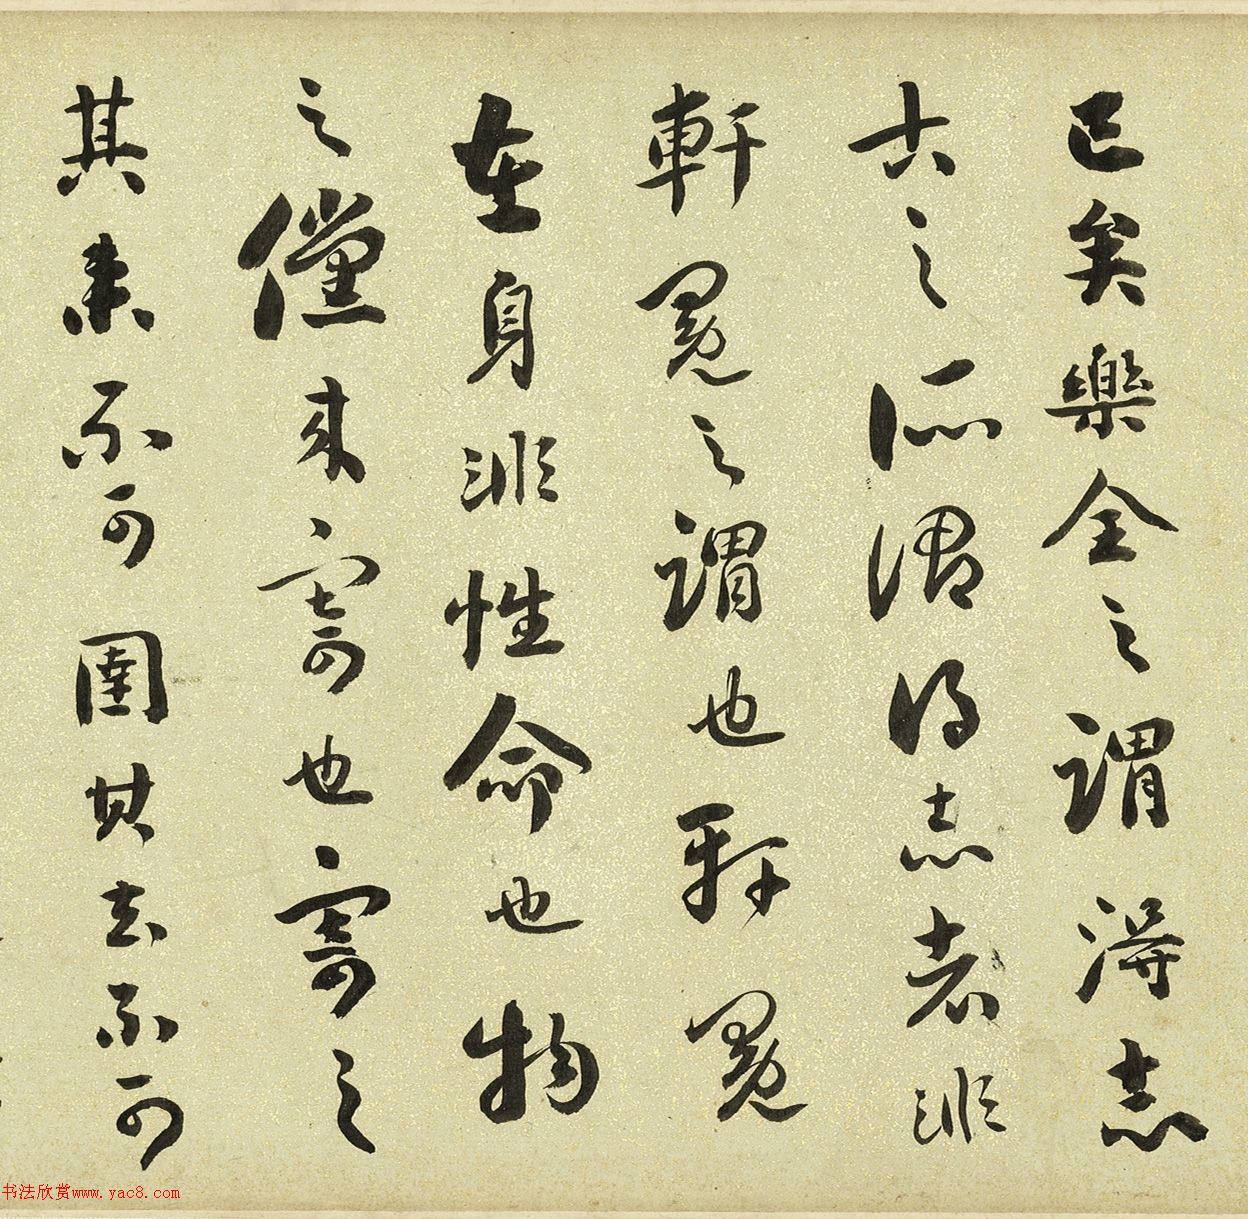 已矣樂全之謂得志
古之所謂得志者非
軒冕之謂也軒冕
在身非性命也物
之儻來寄也寄之
其來不可圉其去不可
书法欣赏www.yac8.com